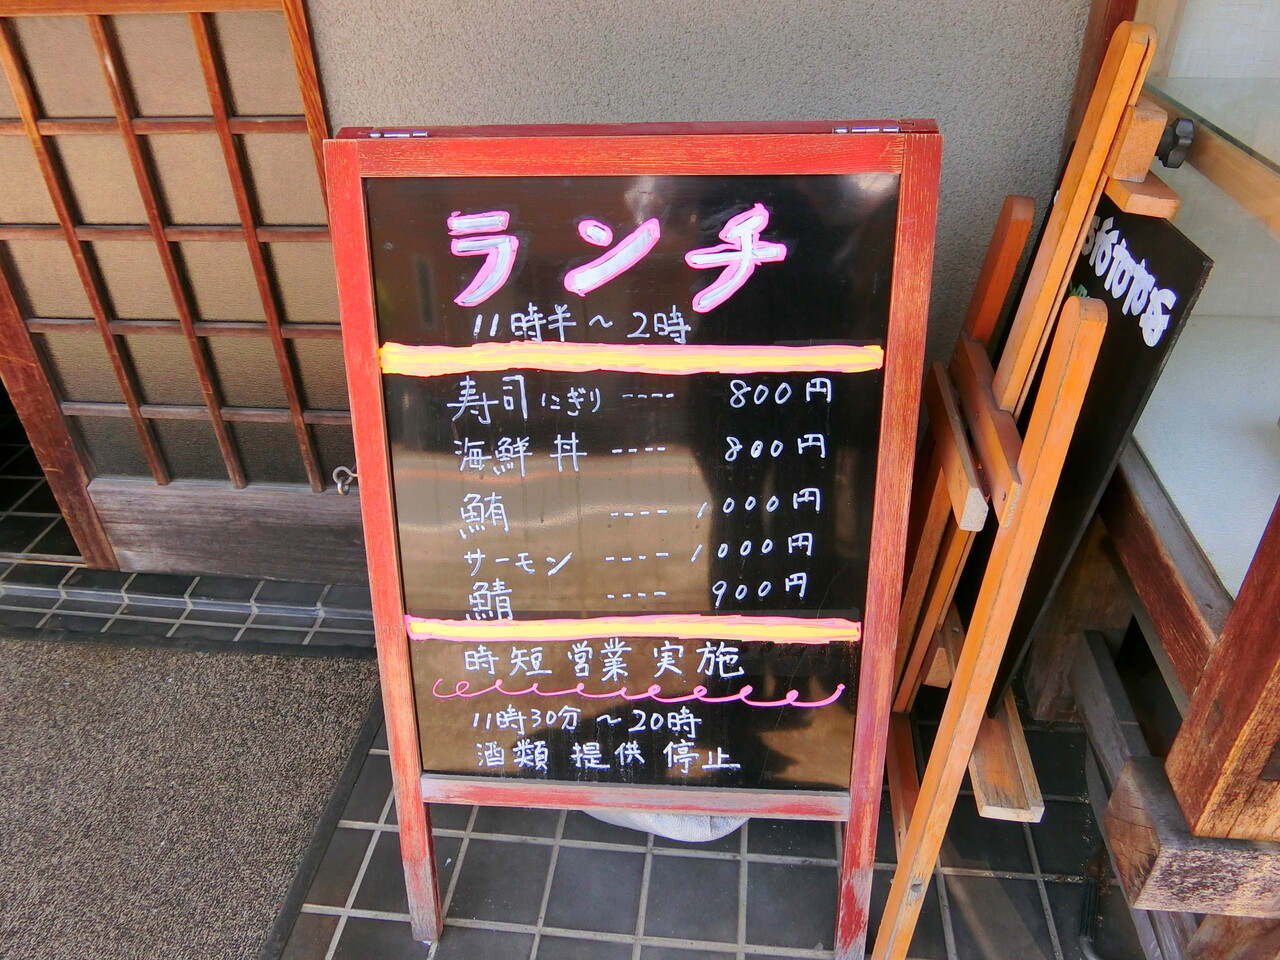 ランチ
11時半～2時
寿司にぎり ---- 800円
海鮮丼 ---- 800円
鮪 ---- 1000円
サーモン ---- 1000円
鯖 ---- 900円
時短営業実施
11時30分～20時
酒類提供停止